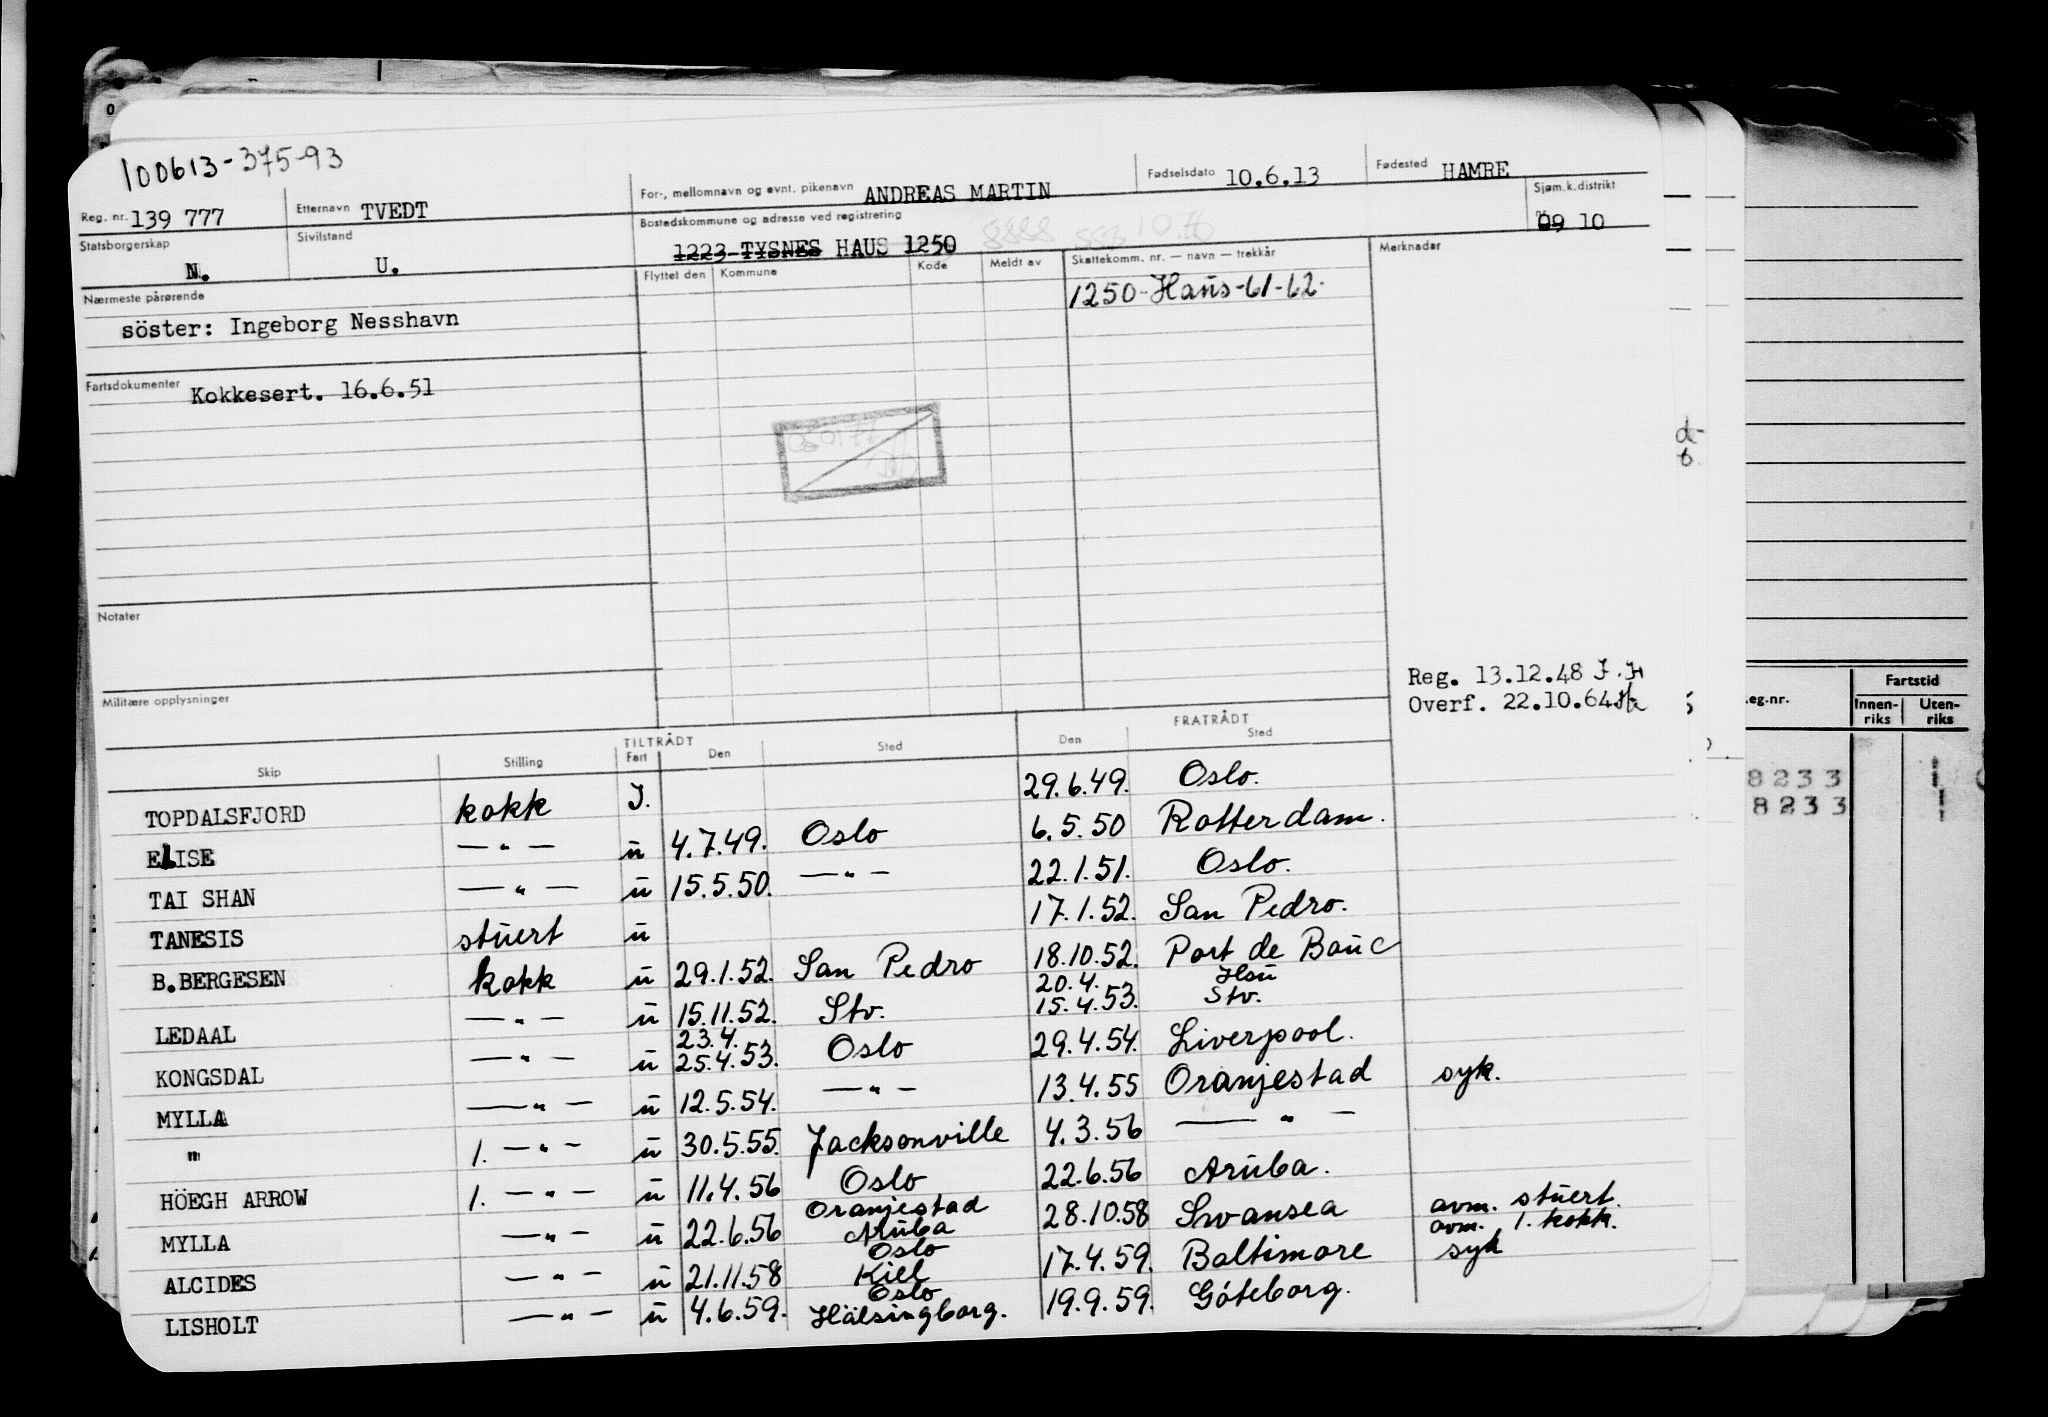 100613-375-93
Reg. nr. 139 777 Etternavn TVEDT For-, mellomnavn og evnt. pikenavn ANDREAS MARTIN Fødselsdato 10.6.13 Fødested HAMRE
Statsborgerskap N. Sivilstand U. Bostedskommune og adresse ved registrering 1223 TYSNES HAUS 1250 Sjøm.k.distrikt 09 10
Flyttet den Kommune Kode Meldt av Skattekomm. nr. — navn — trekkår Merknader
Nærmeste pårørende 1250-Haus-61-62-
söster: Ingeborg Nesshavn
Fartsdokumenter Kokkesert. 16.6.51
Notater
Militære opplysninger
Reg. 13.12.48
Overf. 22.10.64
eg.nr. Fartstid
Innen-riks Uten-riks
8233
8233
TILTRÅDT FRATRÅDT
Skip Stilling Fart Den Sted Den Sted
TOPDALSFJORD kokk J. 29.6.49. Oslo.
ELISE — " — u 4.7.49. Oslo 6.5.50 Rotterdam.
TAI SHAN — " — u 15.5.50. — " — 22.1.51. Oslo.
TANESIS stuert u 17.1.52. San Pedro.
B.BERGESEN kokk u 29.1.52. San Pedro 18.10.52. Port de Bouc
20.4. Hsu
LEDAAL — " — u 15.11.52. Stv. 15.4.53. Stv.
23.4.
KONGSDAL — " — u 25.4.53. Oslo 29.4.54. Liverpool.
MYLLA — " — u 12.5.54. — " — 13.4.55 Oranjestad syk.
" 1. — " — u 30.5.55. Jacksonville 4.3.56 — " —
HÖEGH ARROW 1. — " — u 11.4.56 Oslo 22.6.56 Aruba.
Oranjestad
MYLLA — " — u 22.6.56 Aruba 28.10.58 Swansea avm. stuert.
avm. 1. kokk.
Oslo
ALCIDES — " — u 21.11.58 Kiel 17.4.59. Baltimore syk
Oslo
LISHOLT — " — u 4.6.59. Hälsingborg. 19.9.59. Göteborg.